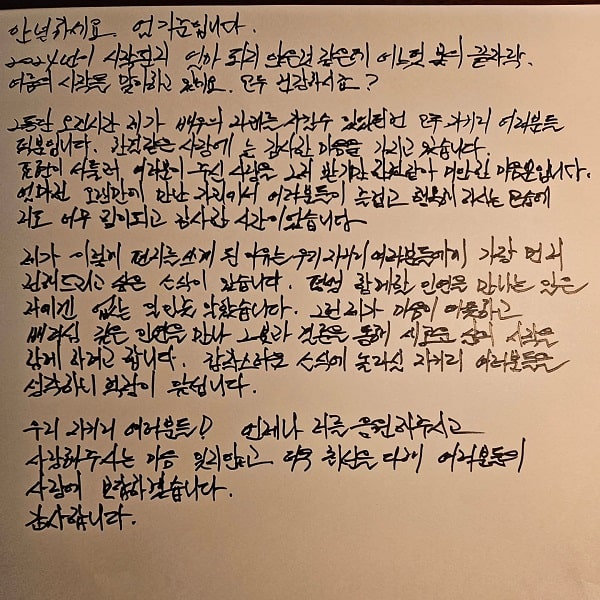 안녕하세요. 엄기준입니다.
2024년이 시작된지 얼마 되지 않은것 같은데 어느덧 봄의 끝자락.
여름의 시작을 맞이하고 있네요. 모두 건강하시죠?
그동안 오랜시간 제가 배우의 자리를 지킬수 있었던건 모두 지키리 여러분들
덕분입니다. 한결같은 사랑에 늘 감사한 마음을 가지고 있습니다.
표현이 서툴러, 여러분이 주신 사랑을 그저 받기만 한것같아 미안한 마음뿐입니다.
얼마전 오랜만에 만난 자리에서 여러분들이 즐겁고 행복해 하시는 모습에
저도 너무 힐링되고 감사한 시간이었습니다
제가 이렇게 편지를 쓰게 된 이유는 우리 지키리 여러분들에게 가장 먼저
전해드리고 싶은 소식이 있습니다. 평생 함께할 인연을 만나는 일은
저에겐 없는 일인줄 알았습니다. 그런 제가 마음이 따뜻하고
배려심 깊은 인연을 만나 그분과 결혼을 통해 새로운 삶의 시작을
함께 하려고 합니다. 갑작스러운 소식에 놀라실 지키리 여러분들을
생각하니 걱정이 앞섭니다.
우리 지키리 여러분들! 언제나 저를 응원해주시고
사랑해주시는 마음 잊지않고 더욱 최선을 다해 여러분들의
사랑에 보답하겠습니다.
감사합니다.